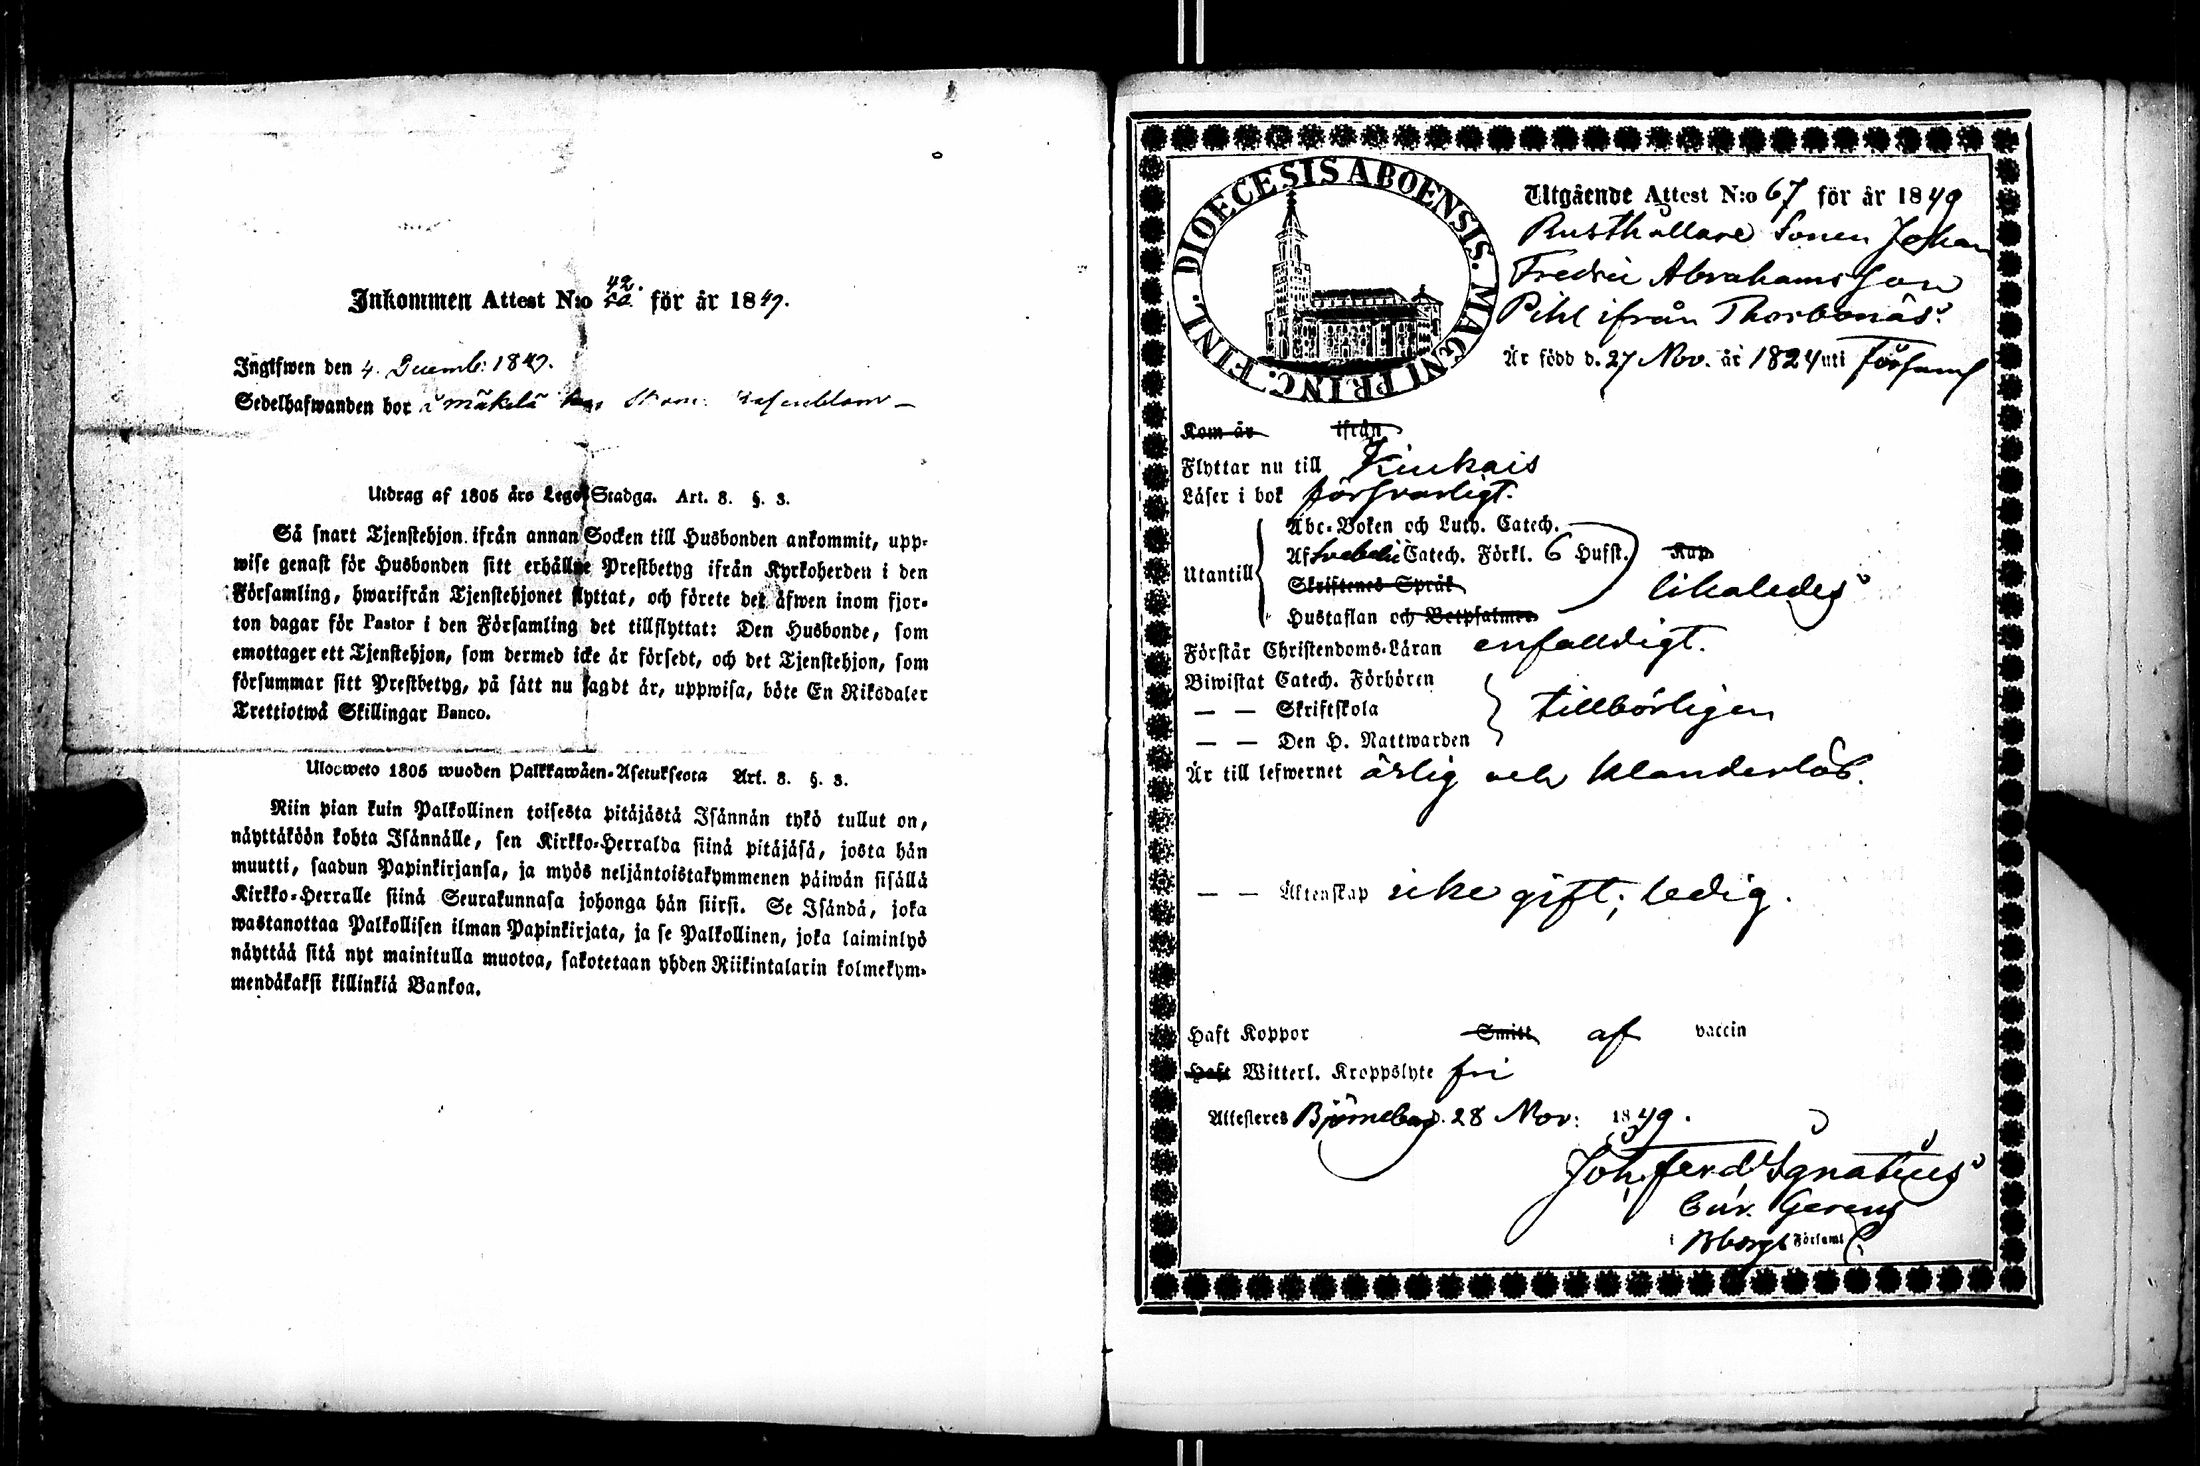 Inkommen Attest N:o 42. för år 1849.
Ingifwen den 4. Decemb: 1849.
Sedelhafwanden bor i Mäkelä hos
Utdrag af 1805 års Lego-Stadga. Art. 8. §. 3.
Så snart Tjenstehjon ifrån annan Socken till Husbonden ankommit, upp-
wise genast för Husbonden sitt erhållne Prestbetyg ifrån Kyrkoherden i den
Församling, hwarifrån Tjenstehjonet flyttat, och förete det äfwen inom fjor-
ton dagar för Pastor i den Församling det tillflyttat: Den Husbonde, som
emottager ett Tjenstehjon, som dermed icke är försedt, och det Tjenstehjon, som
försummar sitt Prestbetyg, på sätt nu sagdt är, uppwisa, böte En Riksdaler
Trettiotwå Skillingar Banco.
Ulosweto 1805 wuoden Palkkawäen-Asetuksesta Art. 8. §. 3.
Niin pian kuin Palkollinen toisesta pitäjästä Isännän tykö tullut on,
näyttäköön kohta Isännälle, sen Kirkko-Herralda siinä pitäjäsä, josta hän
muutti, saadun Papinkirjansa, ja myös neljäntoistakymmenen päiwän sisällä
Kirkko-Herralle siinä Seurakunnasa johonga hän siirsi. Se Isändä, joka
wastanottaa Palkollisen ilman Papinkirjata, ja se Palkollinen, joka laiminlyö
näyttää sitä nyt mainitulla muotoa, sakotetaan yhden Riikintalarin kolmekym-
mendäkaksi killinkiä Bankoa.
DIOECESIS ABOENSIS. MAGNI PRINC. FINL.
Utgående Attest N:o 67 för år 1849
Rusthållare Sonen Johan
Fredric Abrahamsson
Pihl ifrån Thorbonäs.
Är född d. 27 Nov. år 1824 uti Församl
Kom år ifrån
Flyttar nu till Kiukais
Läser i bok försvarligt.
Utantill
Abc-Boken och Luth. Catech.
Af Svebelii Catech. Förkl. 6 Hufst. Kap
Skriftenes Språk likaledes
Hustaflan och Botpsalmer
Förstår Christendoms-Läran enfalldigt.
Biwistat Catech. Förhören
— — Skriftskola tillbörligen
— — Den H. Nattwarden
Är till lefwernet ärlig och klanderlös.
— — Äktenskap icke gift; ledig.
Haft Koppor Smitt af vaccin
Haft Witterl. Kroppslyte fri
Attesteres Björneborg d. 28 Nov: 1849.
Joh. Ferd. Ignatius
Cur. Gerens
i Bborgs Församl